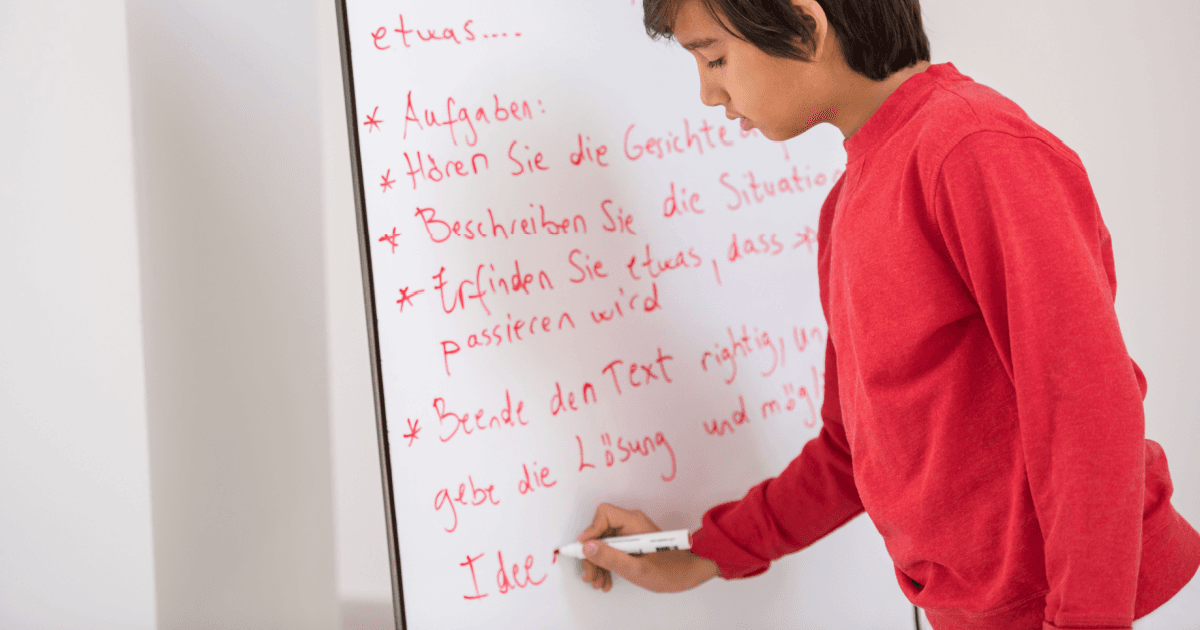 etwas....
* Aufgaben:
* Hören Sie die Gesichte
* Beschreiben Sie die Situation
* Erfinden Sie etwas, dass *
passieren wird
* Beende den Text rightig, un
gebe die Lösung und mögl
Idee